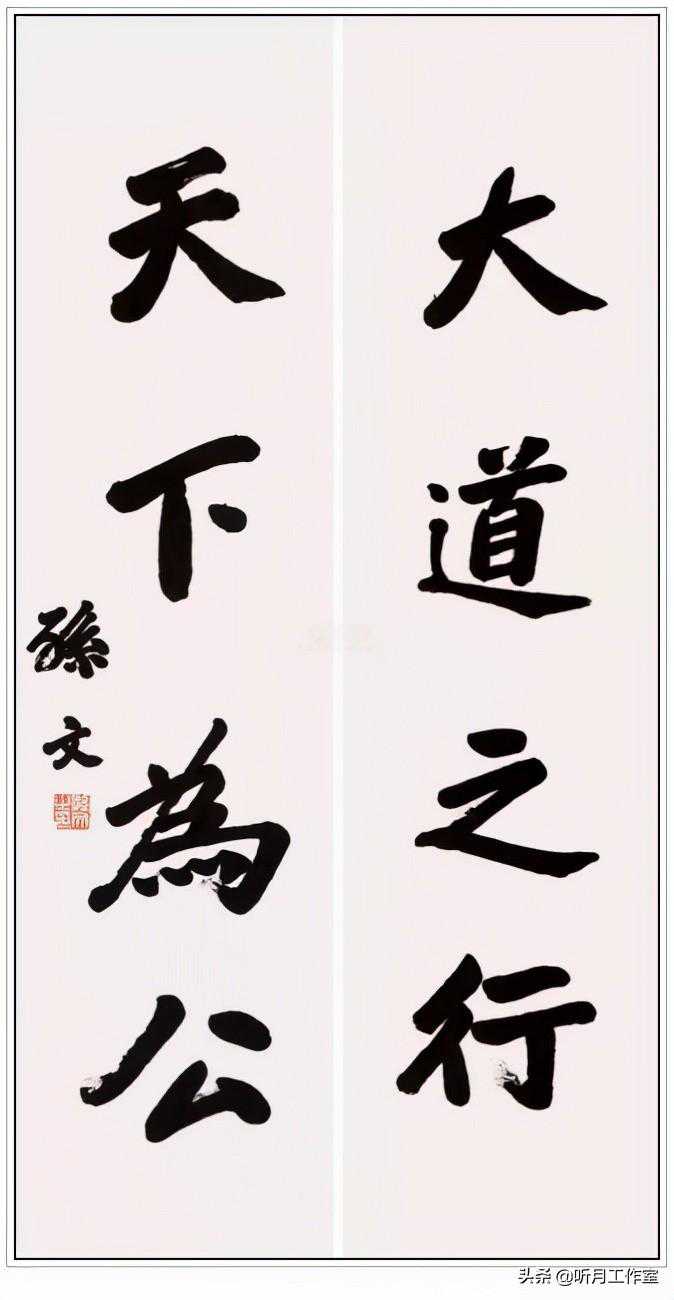 大道之行
天下為公
孫文
头条 @听月工作室